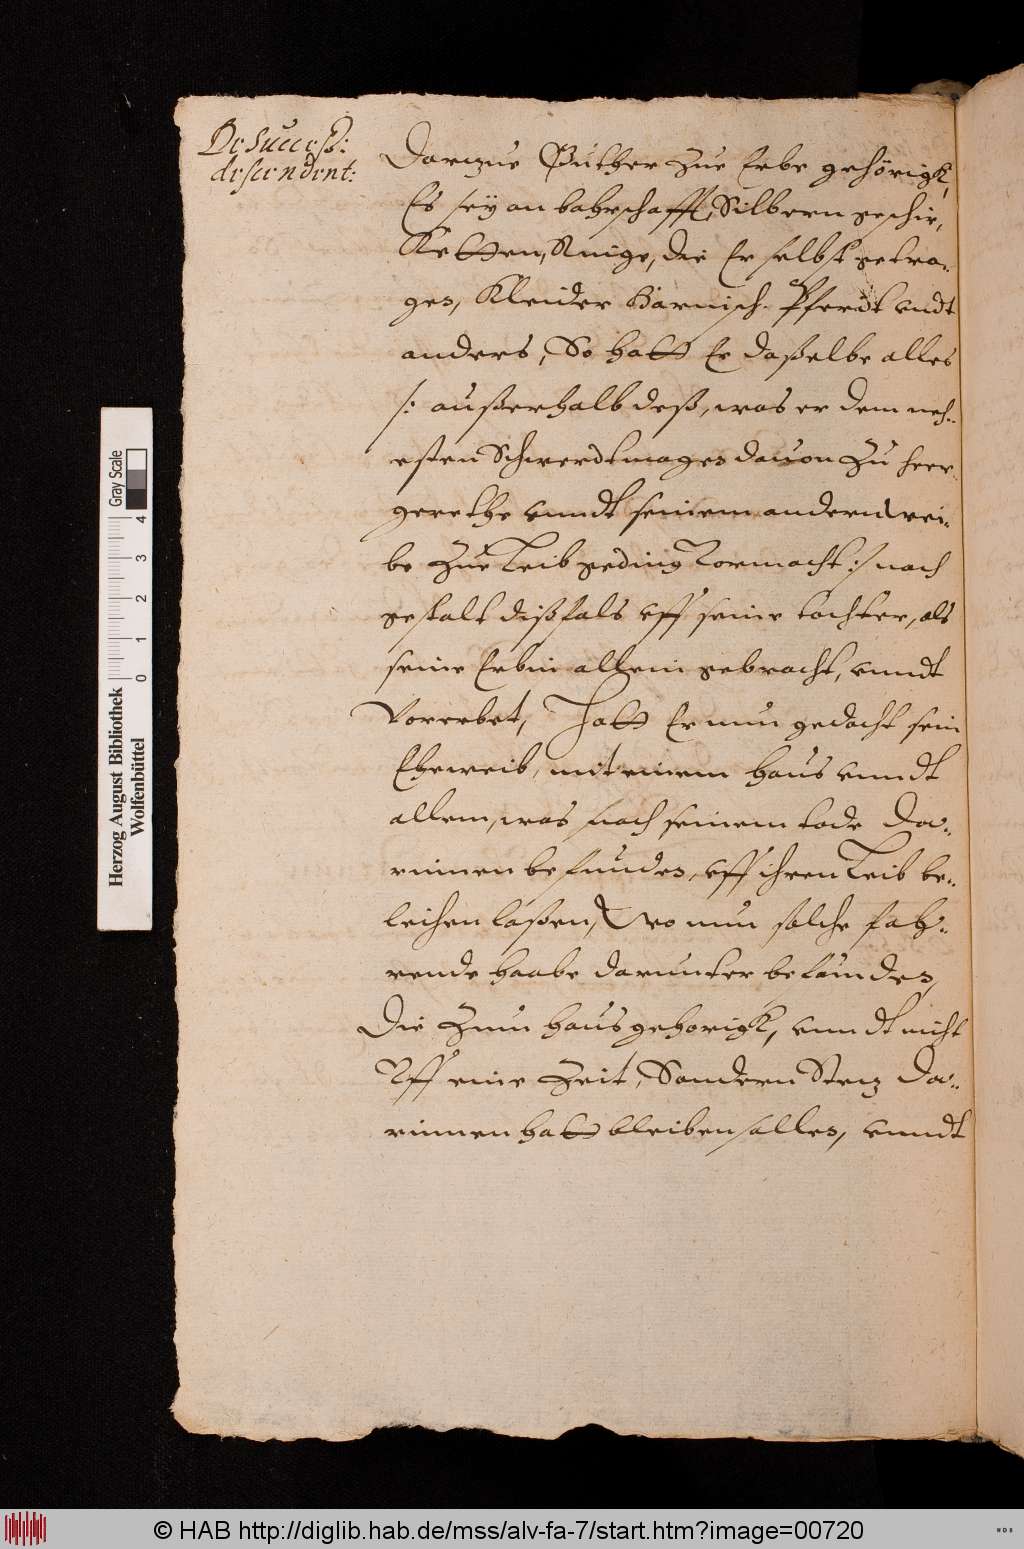 De Success:
descendent:
Darzue Guther zue Erbe gehörigk,
Es sey an bahrschafft, Silbern geschir,
Ketten, Ringe, die Er selbst getra-
gen, Kleider Harnisch Pferdt undt
anders, So hatt Er daßelbe alles
/: außerhalb deß, was er dem neh-
esten Schwerdtmagen dauon zu heer
gerethe unndt seinem andern wei-
be zue Leib geding Vormacht :/ nach
gestalt dißfals uff seine tochter, als
seine Erbin allein gebracht, unndt
Vorerbet, Hatt Er nun gedacht sein
Eheweib, mit einem Haus unndt
allem, was nach seinem tode da-
rinnen befunden, uff ihren Leib be-
leihen laßen, wo nun solche fah-
rende haabe darunter befunden,
Die zum Haus gehorigk, unndt nicht
Uff eine Zeit, Sondern Stetz da-
rinnen hatt bleiben sollen, unndt
Herzog August Bibliothek
Wolfenbüttel
Gray Scale
0 1 2 3 4
© HAB http://diglib.hab.de/mss/alv-fa-7/start.htm?image=00720